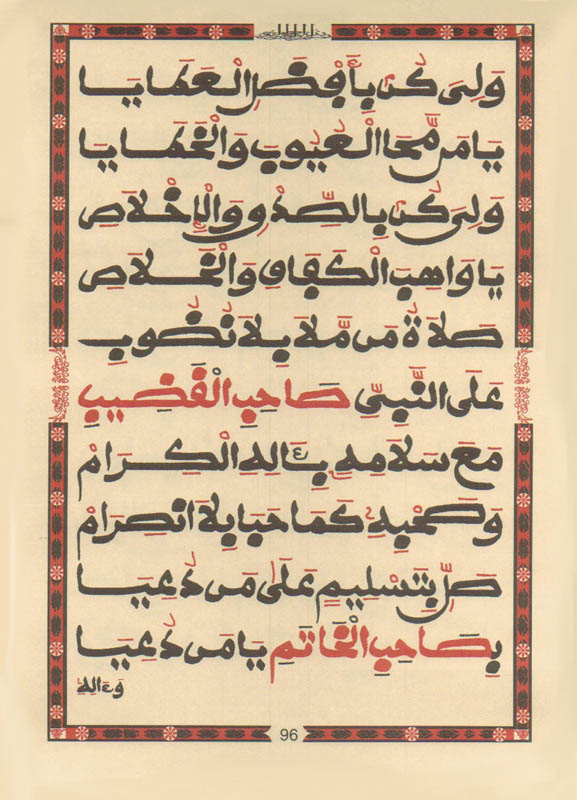 وَلِىَ كُن بِأَفْضَلِ الْعَطَايَا
يَا مَن مَّحَا الْعُيُوبَ وَالْخَطَايَا
وَلِىَ كُن بِالصِّدْقِ وَالْإِخْلَاصِ
يَا وَاهِبَ الْكَفَافِ وَالْخَلَاصِ
صَلَاةُ مَن مَّلَا بِلَا نُضُوبِ
عَلَى النَّبِىِّ صَاحِبِ الْقَضِيبِ
مَعَ سَلَامِهِ بِـَٔالِهِ الْكِرَامْ
وَصَحْبِهِ كَمَا حَبَا بِلَا انْصِرَامْ
صَلِّ بِتَسْلِيمٍ عَلَى مَن دُعِيَا
بِصَاحِبِ الْخَاتَمِ يَا مَن دُعِيَا
وَءَالِهِ
96